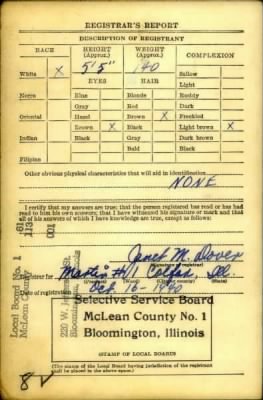 REGISTRAR'S REPORT
DESCRIPTION OF REGISTRANT
RACE HEIGHT (Approx.) WEIGHT (Approx.) COMPLEXION
5'5" 140
White X Sallow
EYES HAIR Light
Negro Blue Blonde Ruddy
Gray Red Dark
Oriental Hazel Brown X Freckled
Brown X Black Light brown X
Indian Black Gray Dark brown
Bald Black
Filipino
Other obvious physical characteristics that will aid in identification
NONE
I certify that my answers are true; that the person registered has read or has had
read to him his own answers; that I have witnessed his signature or mark and that
all of his answers of which I have knowledge are true, except as follows:
Janet M. Dover
(Signature of registrar)
Registrar for Martin #1 Colfax, Ill.
(Precinct) (Ward) (City or county) (State)
Date of registration Oct. 16-1940
Local Board No. 1
McLean County
113
001
220 W.
Bloomington, Illinois
Selective Service Board
McLean County No. 1
Bloomington, Illinois
STAMP OF LOCAL BOARD
(The stamp of the Local Board having jurisdiction of the registrant
shall be placed in the above space.)